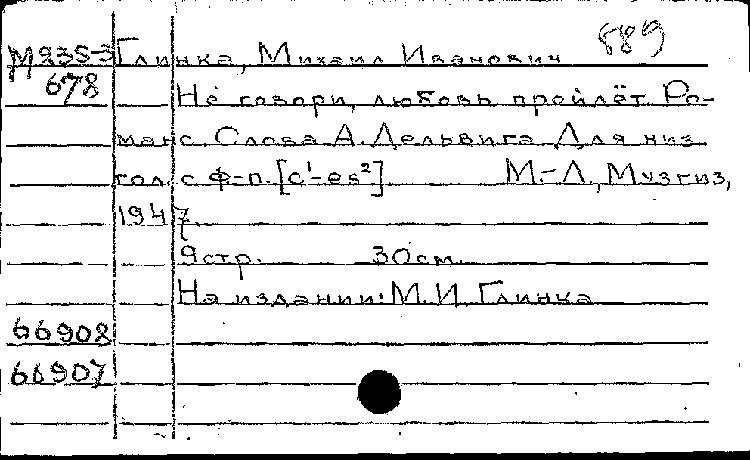 889
М235-3 Глинка, Михаил Иванович
678 Не говори, любовь пройдёт. Ро-
манс. Слова А. Дельвига. Для низ.
гол. с ф-п. [c¹-es²]. М.-Л., Музгиз,
1947.
9 стр. 30 см.
На издании: М.И. Глинка
66908
66907